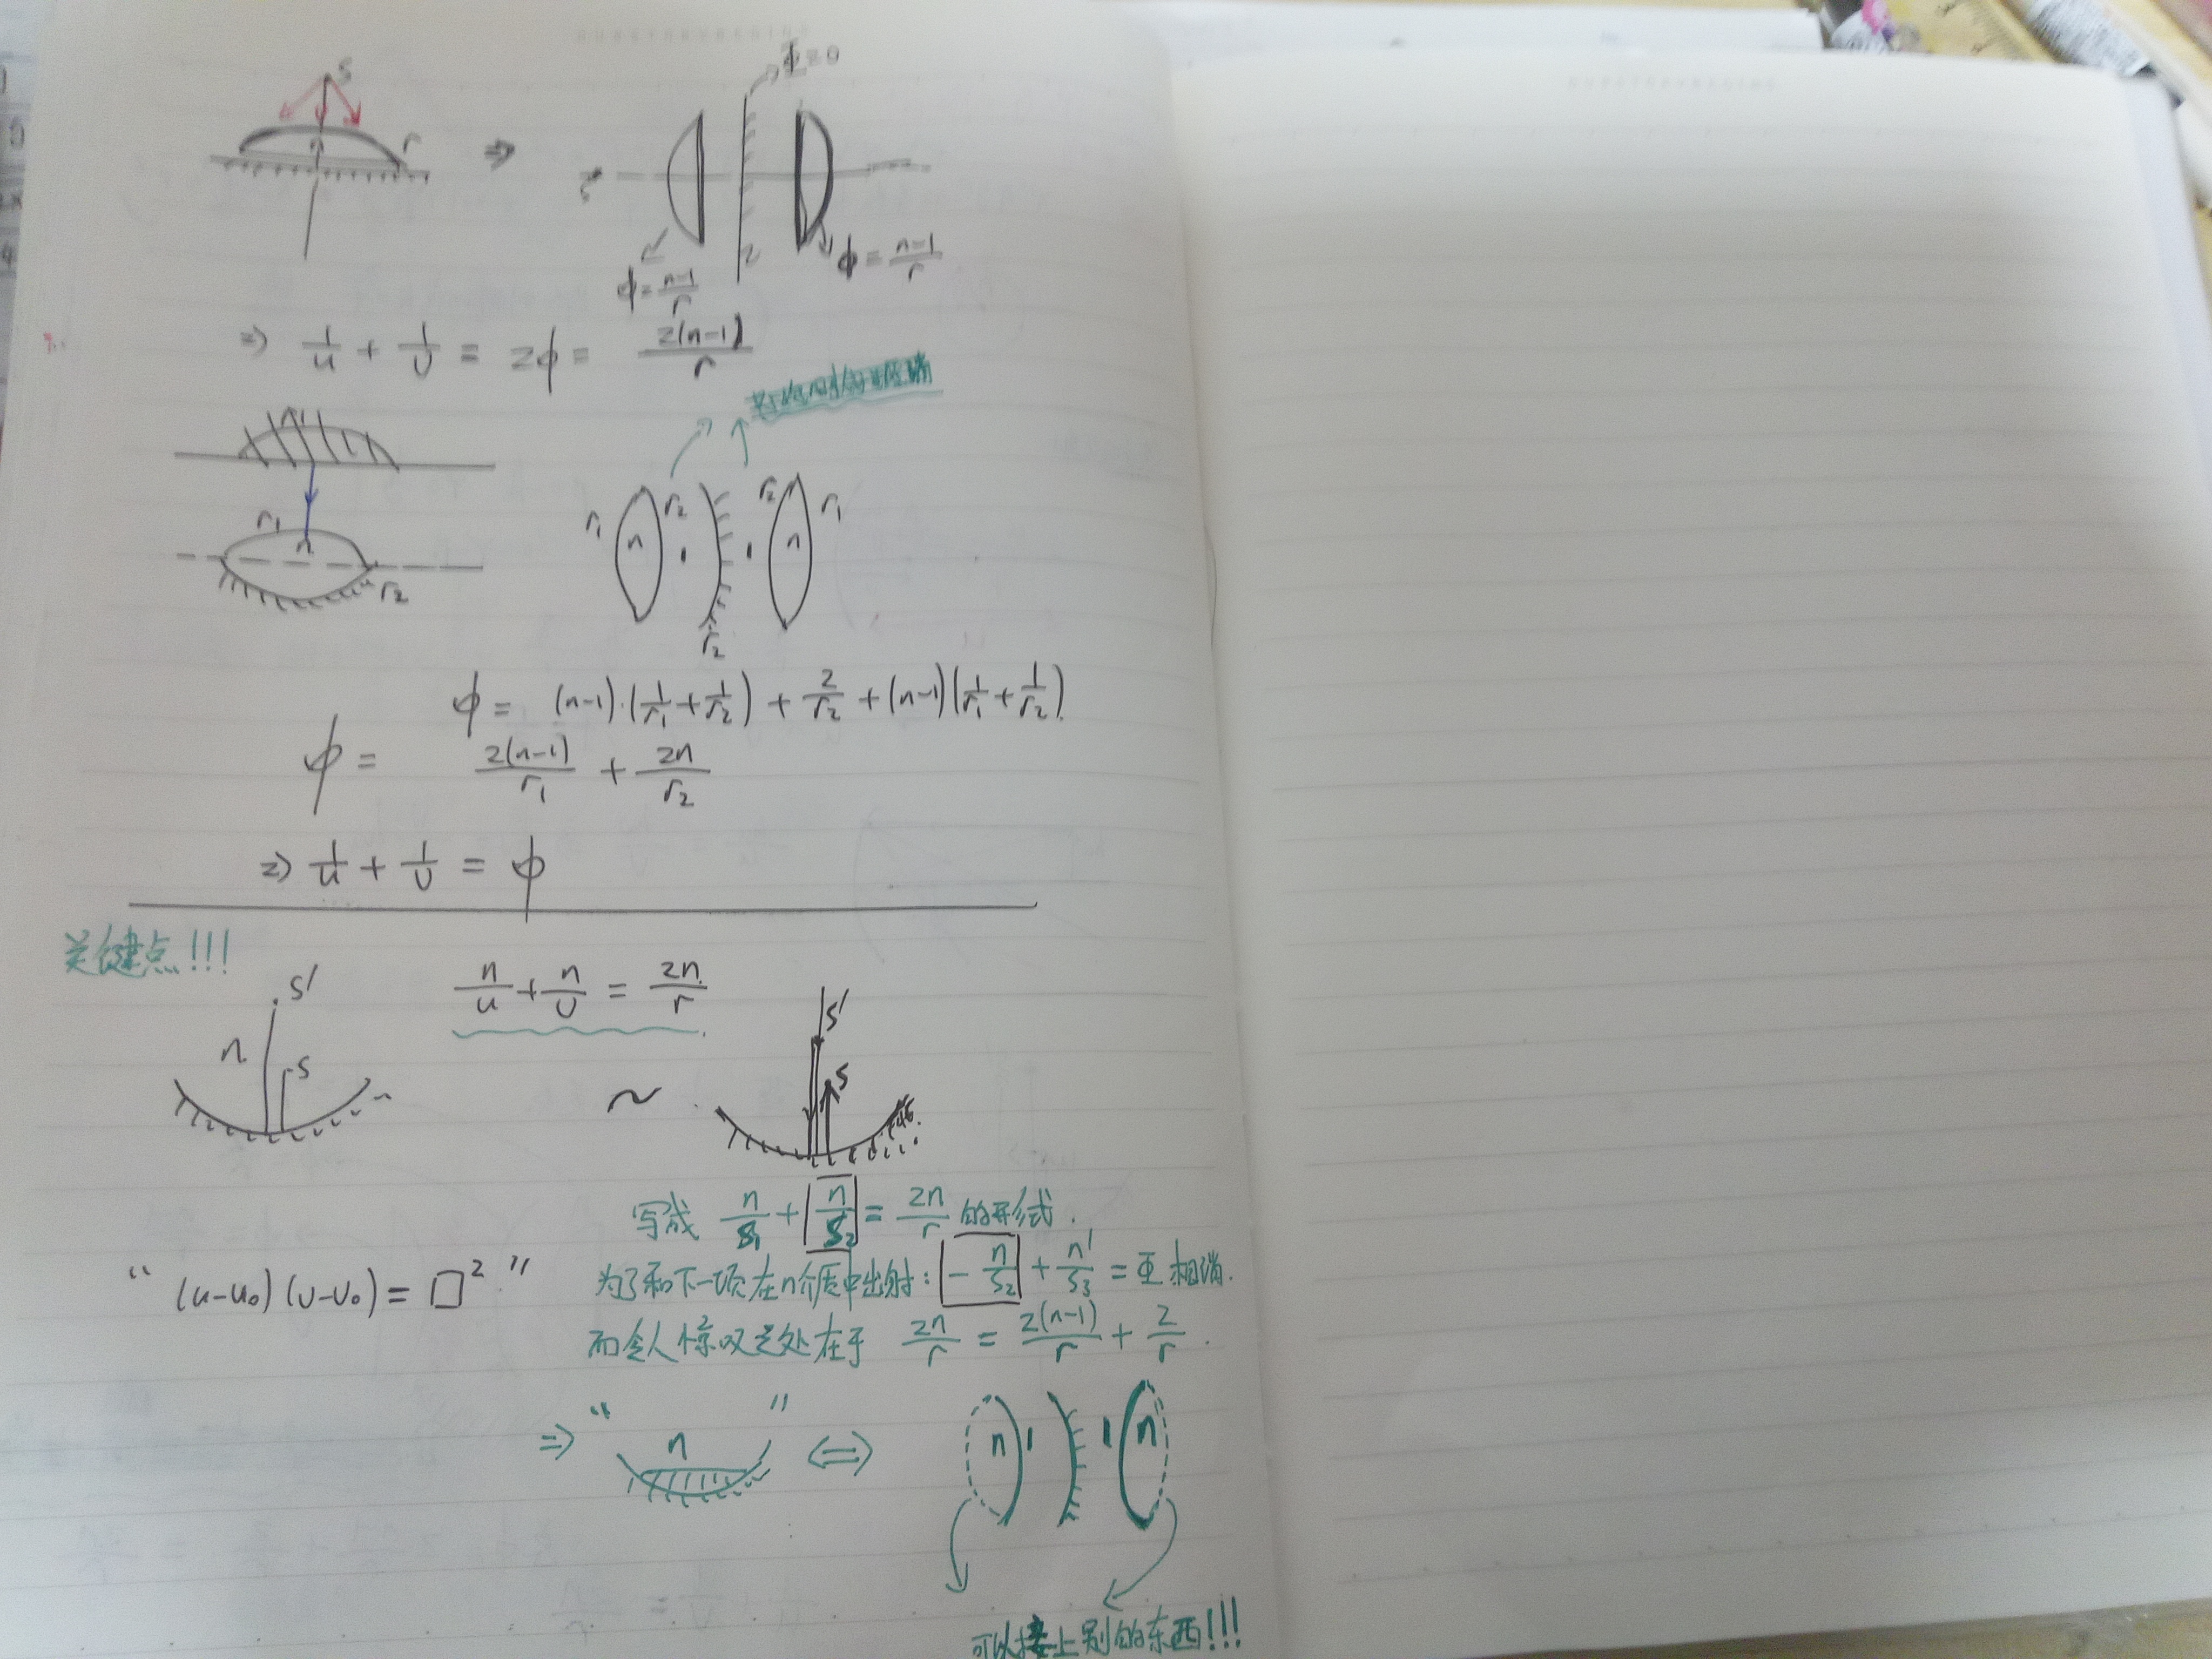 S
n r
⇒
Φ=0
S
ϕ = (n-1)/r
ϕ = (n-1)/r
⇒ 1/u + 1/v = 2ϕ = 2(n-1)/r
r₁
n
r₂
r₁ n r₂ 1 1 r₂ n r₁
r₂
ϕ = (n-1)·(1/r₁ + 1/r₂) + 2/r₂ + (n-1)(1/r₁ + 1/r₂)
ϕ = 2(n-1)/r₁ + 2n/r₂
⇒ 1/u + 1/v = ϕ
关键点!!!
n/u + n/v = 2n/r
S'
n
S
~
S'
S
写成 n/S₁ + n/S₂ = 2n/r 的形式.
为了和下一项在n介质中出射: -n/S₂ + n'/S₃ = Φ 相消.
"(u-u₀)(v-v₀) = □²"
而令人惊叹之处在于 2n/r = 2(n-1)/r + 2/r .
⇒ " n " ⇔ n 1 1 n
可以接上别的东西!!!